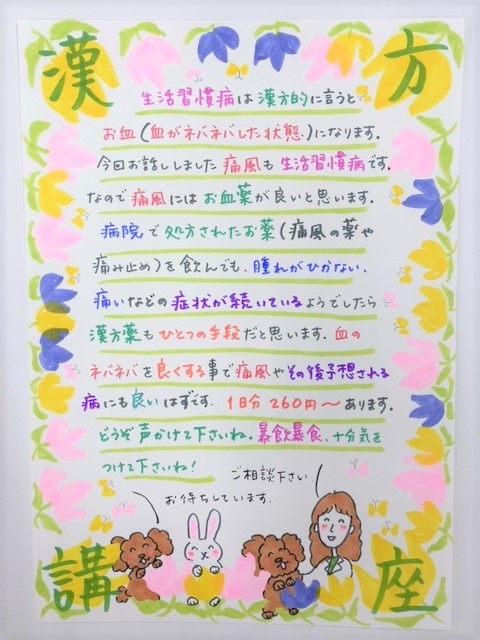 漢方
生活習慣病は漢方的に言うと
お血(血がネバネバした状態)になります。
今回お話ししました痛風も生活習慣病です。
なので痛風にはお血薬が良いと思います。
病院で処方されたお薬(痛風の薬や
痛み止め)を飲んでも、腫れがひかない、
痛いなどの症状が続いているようでしたら
漢方薬もひとつの手段だと思います。血の
ネバネバを良くする事で痛風やその後予想される
病にも良いはずです。1日分260円〜あります。
どうぞ声かけて下さいね。暴飲暴食、十分気を
つけて下さいね!
ご相談下さい
お待ちしています。
講座